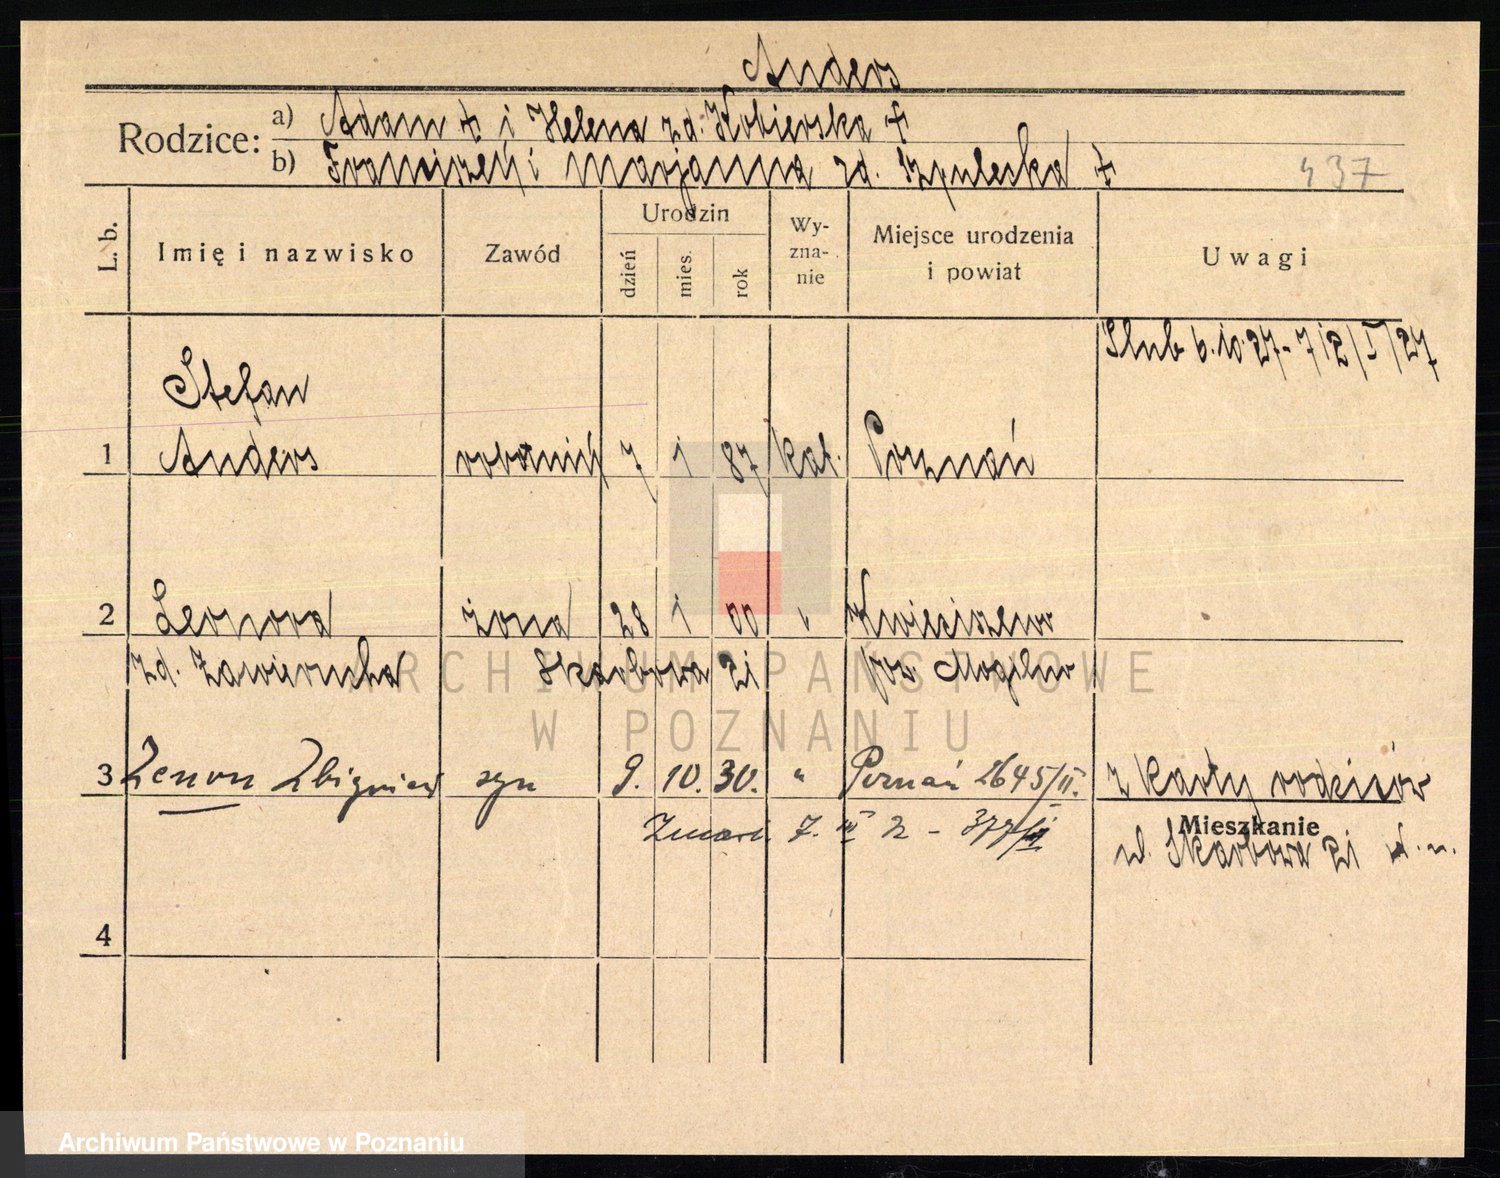 Anders
Rodzice: a) Adam ✝ i Helena zd. Kobierska ✝
b) Franciszek i Marjanna zd. Szpuleska ✝
437
L. b. Imię i nazwisko Zawód Urodzin dzień mies. rok Wy-zna-nie Miejsce urodzenia i powiat Uwagi
Ślub 6.10.27 -
Stefan
1 Anders robotnik 7 1 87 kat. Poznań
2 Leonora żona 28 1 00 " Kwieciszewo
zd. Zawierucha Skarbowa 21 pow. Mogilno
3 Zenon Zbigniew syn 9. 10. 30. " Poznań 2645/II. z karty rodziców
Zmarł 7. III 32 - 377/II
Mieszkanie
ul. Skarbowa 21
4
ARCHIWUM PAŃSTWOWE
W POZNANIU
Archiwum Państwowe w Poznaniu